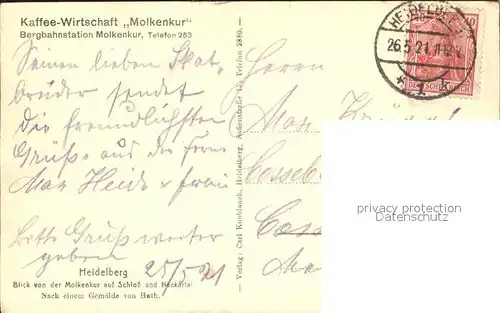 Kaffee-Wirtschaft „Molkenkur"
Bergbahnstation Molkenkur, Telefon 283
Seinen lieben Skat-
brüder sendet
die freundlichsten
Grüße aus der Ferne
Max Heide & Frau
Bitte Gruß weiter
geben
25/5 21
Heidelberg
Blick von der Molkenkur auf Schloß und Neckartal
Nach einem Gemälde von Huth.
Verlag: Carl Knoblauch, Heidelberg, Telefon 2880.
HEIDELBERG
26.5.21.
10
DEUTSCHES REICH
Herrn
Max
privacy protection
Datenschutz